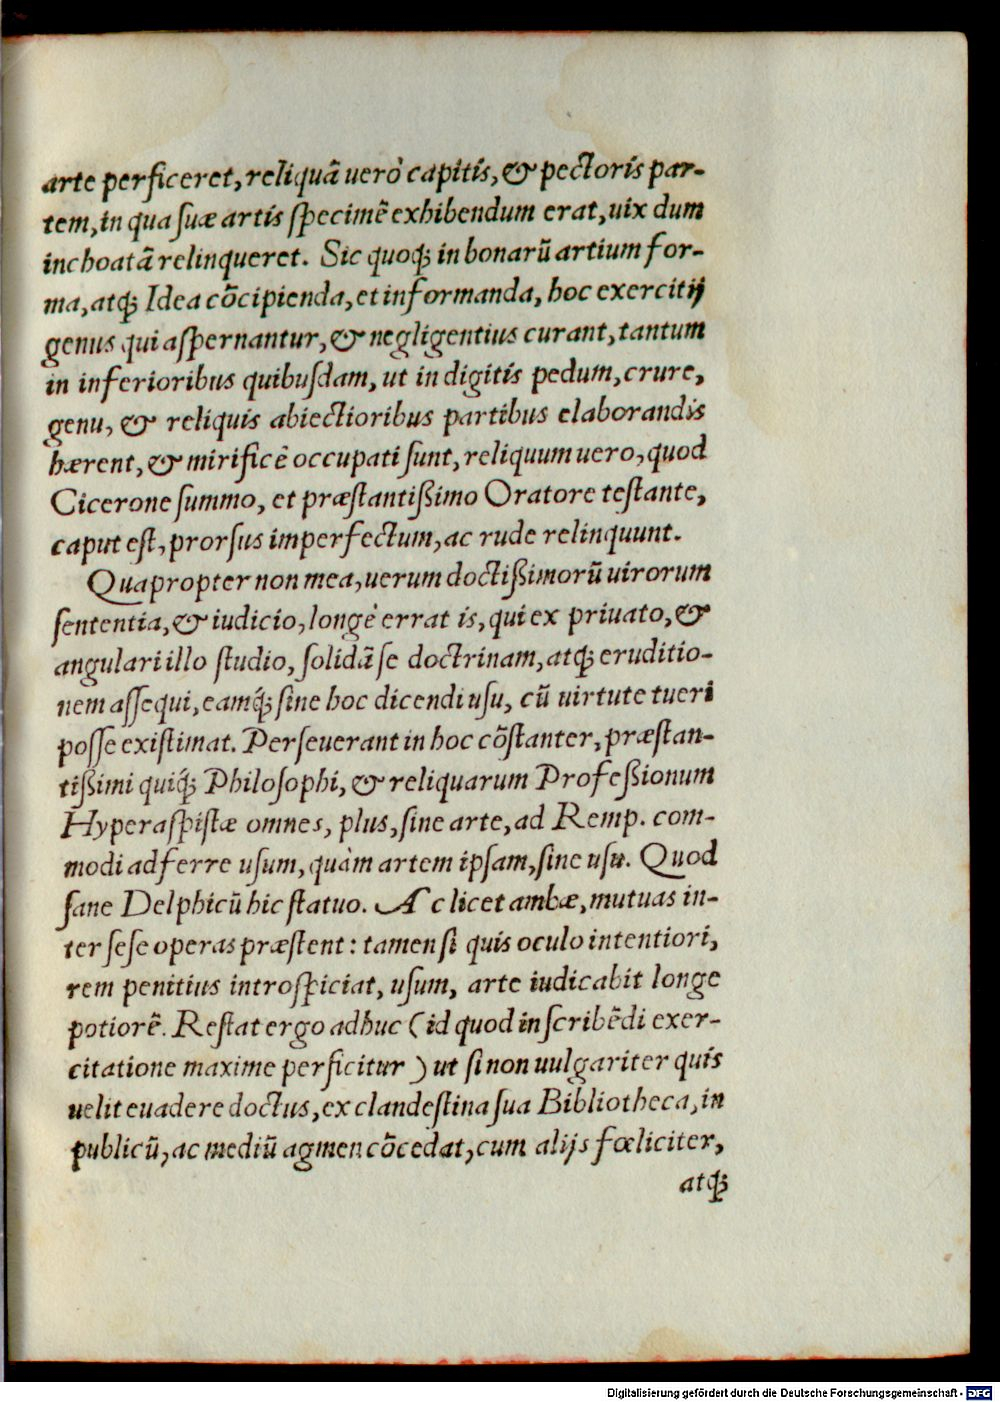 arte perficeret, reliquā uerò capitis, & pectoris par-
tem, in qua suæ artis specimē exhibendum erat, uix dum
inchoatā relinqueret. Sic quoqꝫ in bonarū artium for-
ma, atqꝫ Idea cōcipienda, et informanda, hoc exercitij
genus qui aspernantur, & negligentius curant, tantum
in inferioribus quibusdam, ut in digitis pedum, crure,
genu, & reliquis abiectioribus partibus elaborandis
hærent, & mirificè occupati sunt, reliquum uero, quod
Cicerone summo, et præstantißimo Oratore testante,
caput est, prorsus imperfectum, ac rude relinquunt.
Quapropter non mea, uerum doctißimorū uirorum
sententia, & iudicio, longè errat is, qui ex priuato, &
angulari illo studio, solidā se doctrinam, atqꝫ eruditio-
nem assequi, eamqꝫ́ sine hoc dicendi usu, cū uirtute tueri
posse existimat. Perseuerant in hoc cōstanter, præstan-
tißimi quiqꝫ́ Philosophi, & reliquarum Profeßionum
Hyperaspistæ omnes, plus, sine arte, ad Remp. com-
modi adferre usum, quàm artem ipsam, sine usu. Quod
sane Delphicū hic statuo. Ac licet ambæ, mutuas in-
ter sese operas præstent: tamen si quis oculo intentiori,
rem penitius introspiciat, usum, arte iudicabit longe
potiorē. Restat ergo adhuc (id quod in scribēdi exer-
citatione maxime perficitur) ut si non uulgariter quis
uelit euadere doctus, ex clandestina sua Bibliotheca, in
publicū, ac mediū agmen cōcedat, cum alijs fœliciter,
atqꝫ
Digitalisierung gefördert durch die Deutsche Forschungsgemeinschaft - DFG